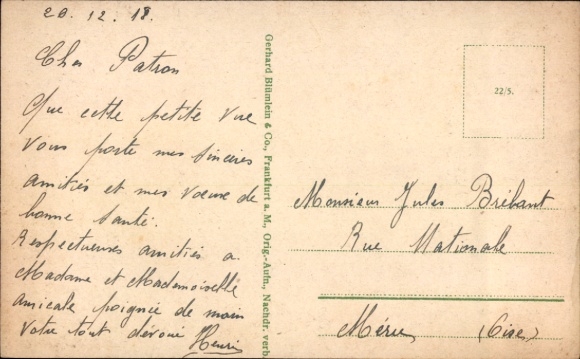 20.12.18.
Cher Patron
Que cette petite vue
vous porte mes sincères
amitiés et mes voeux de
bonne santé.
Respectueuses amitiés a
Madame et Mademoiselle
amicale poignée de main
Votre tout dévoué Henri
Gerhard Blümlein & Co., Frankfurt a. M., Orig.-Aufn., Nachdr. verb.
22/5.
Monsieur Jules Brébant
Rue Nationale
Méru (Oise)